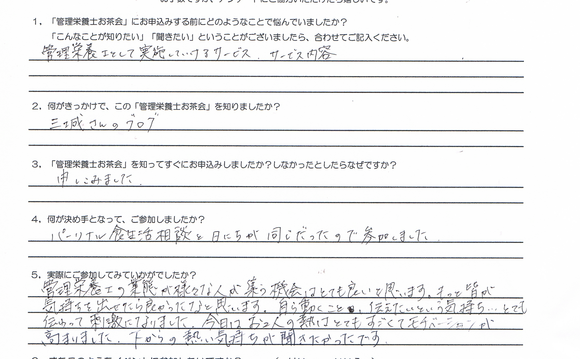 1．「管理栄養士お茶会」にお申込みする前にどのようなことで悩んでいましたか？
「こんなことが知りたい」「聞きたい」ということがございましたら、合わせてご記入ください。
管理栄養士として実施していけるサービス、サービス内容
2．何がきっかけで、この「管理栄養士お茶会」を知りましたか？
三城さんのブログ
3．「管理栄養士お茶会」を知ってすぐにお申込みしましたか？しなかったとしたらなぜですか？
申しこみました。
4．何が決め手となって、ご参加しましたか？
パーソナル食生活相談と日にちが同じだったので参加しました。
5．実際にご参加してみていかがでしたか？
管理栄養士の業態が様々な人が集う機会はとても良いと思います。もっと皆が
気持ちを出せたら良かったなと思います。自ら動くこと、伝えたいという気持ち…とても
伝わって刺激になりました。今日はお2人の熱はとてもすごくてモチベーションが
高まりました。下からの熱い気持ちが聞けたかったです。